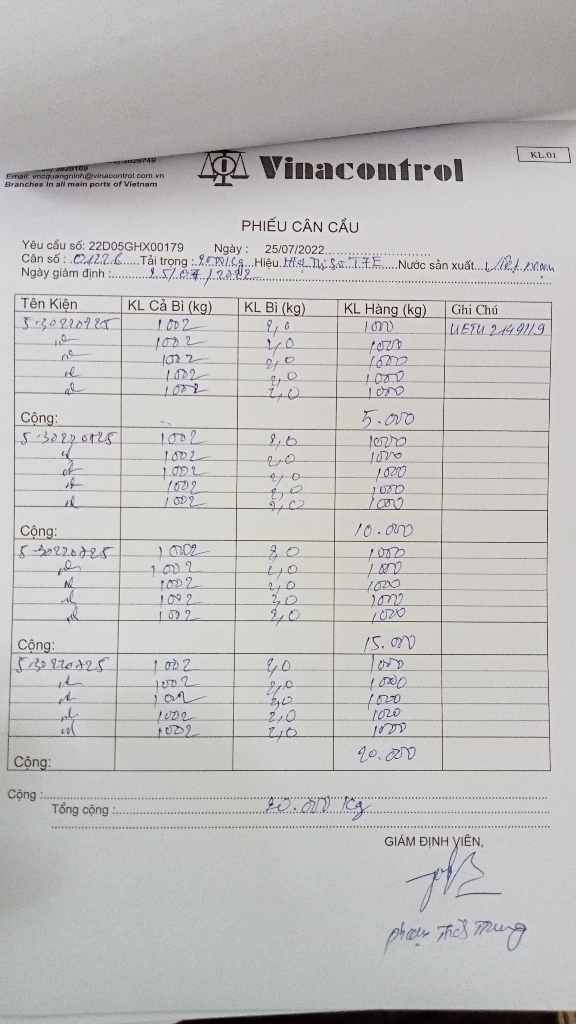 Email: vncquangninh@vinacontrol.com.vn
Branches in all main ports of Vietnam
Vinacontrol
KL.01
PHIẾU CÂN CẨU
Yêu cầu số: 22D05GHX00179 Ngày : 25/07/2022
Cân số : Tải trọng : Hiệu Nước sản xuất Việt Nam
Ngày giám định : 25/07/2022
Tên Kiện KL Cả Bì (kg) KL Bì (kg) KL Hàng (kg) Ghi Chú
5.30220725 1002 2,0 1000 UETU
1002 2,0 1000
1002 2,0 1000
1002 2,0 1000
1002 2,0 1000
Cộng: 5.000
5.30220725 1002 2,0 1000
1002 2,0 1000
1002 2,0 1000
1002 2,0 1000
1002 2,0 1000
Cộng: 10.000
5.30220725 1002 2,0 1000
1002 2,0 1000
1002 2,0 1000
1002 2,0 1000
1002 2,0 1000
Cộng: 15.000
5.30220725 1002 2,0 1000
1002 2,0 1000
1002 2,0 1000
1002 2,0 1000
1002 2,0 1000
Cộng: 20.000
Cộng :
Tổng cộng : 20.000 kg
GIÁM ĐỊNH VIÊN,
Phạm Trung